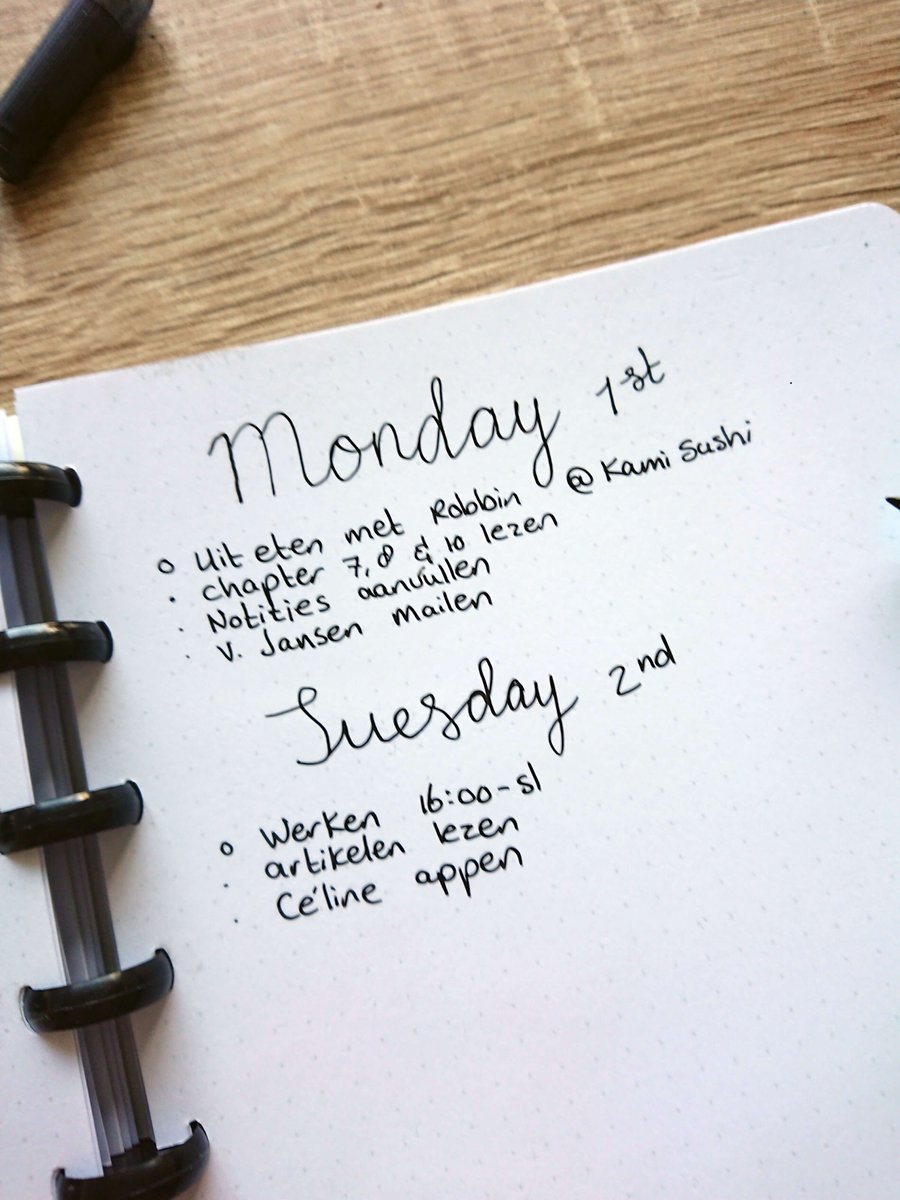 Monday 1st
o Uit eten met Robbin @ Kami Sushi
. chapter 7, 8 & 10 lezen
. Notities aanvullen
. V. Jansen mailen
Tuesday 2nd
o Werken 16:00-sl
. artikelen lezen
. Céline appen